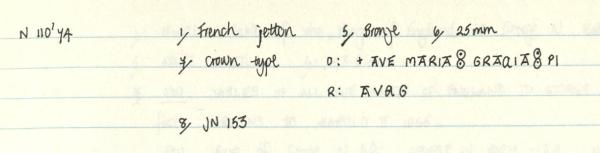 N 110' YA 1, French jetton 5, Bronze 6, 25mm
7, Crown type O: + AVE MARIA 8 GRAQIA 8 PI
R: AVQG
8, JN 153